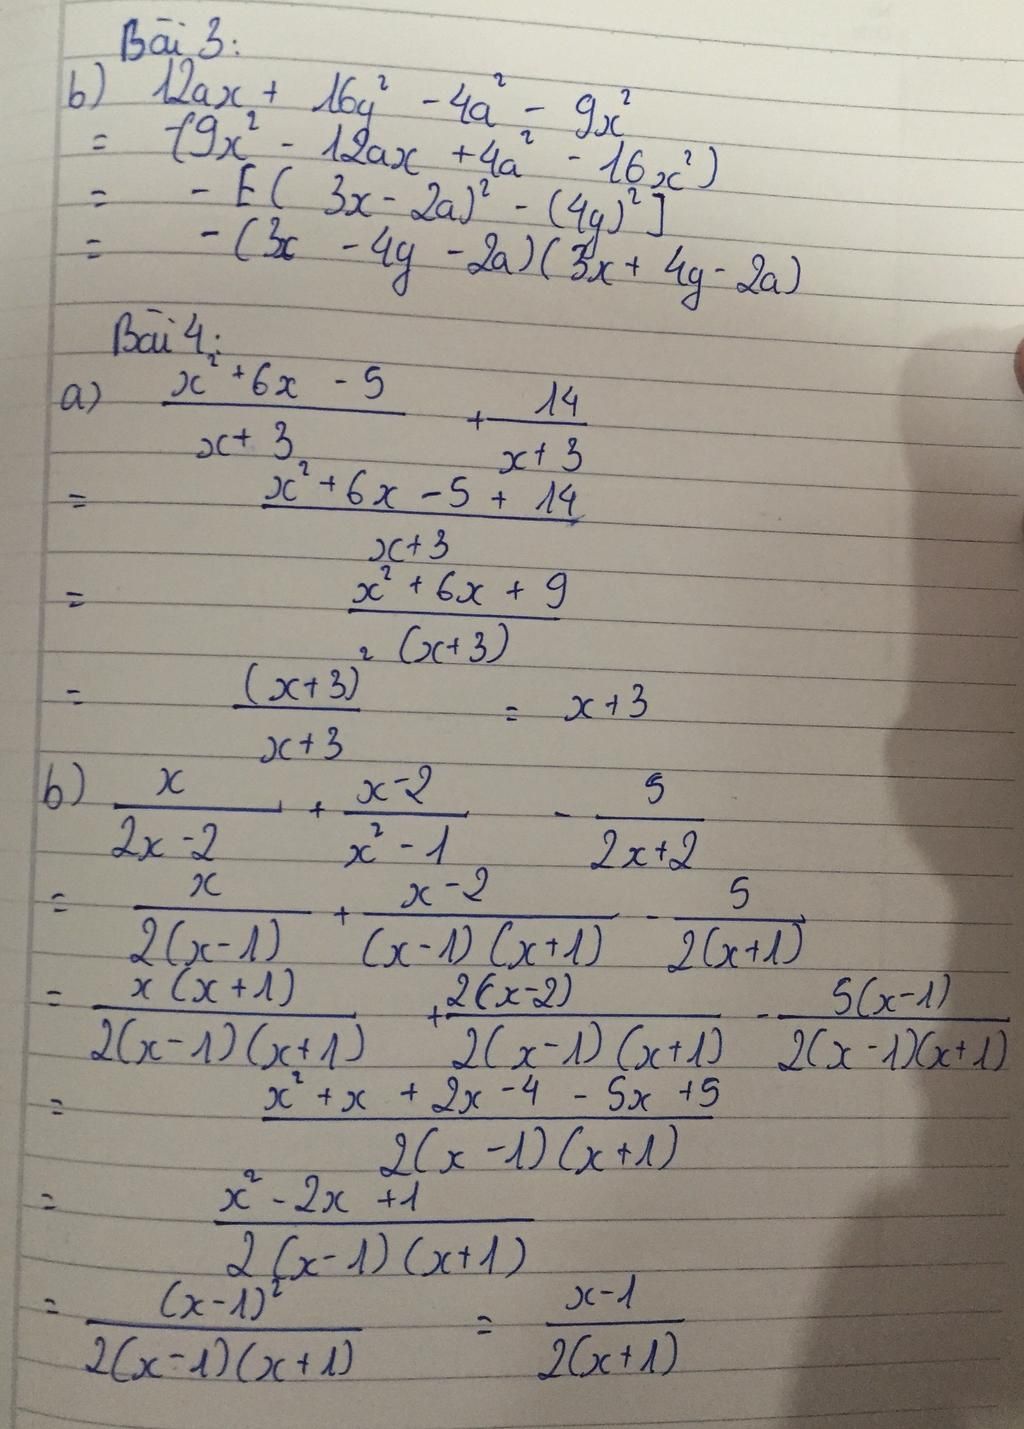 Bài 3:
b) 12ax + 16y² - 4a² - 9x²
= -(9x² - 12ax + 4a² - 16x²)
= - [( 3x - 2a)² - (4y)²]
= -(3x - 4y - 2a)(3x + 4y - 2a)
Bài 4:
a) (x² + 6x - 5)/(x + 3) + 14/(x + 3)
= (x² + 6x - 5 + 14)/(x + 3)
= (x² + 6x + 9)/(x + 3)
= (x + 3)²/(x + 3) = x + 3
b) x/(2x - 2) + (x - 2)/(x² - 1) - 5/(2x + 2)
= x/(2(x - 1)) + (x - 2)/((x - 1)(x + 1)) - 5/(2(x + 1))
= x(x + 1)/(2(x - 1)(x + 1)) + 2(x - 2)/(2(x - 1)(x + 1)) - 5(x - 1)/(2(x - 1)(x + 1))
= (x² + x + 2x - 4 - 5x + 5)/(2(x - 1)(x + 1))
= (x² - 2x + 1)/(2(x - 1)(x + 1))
= (x - 1)²/(2(x - 1)(x + 1)) = (x - 1)/(2(x + 1))